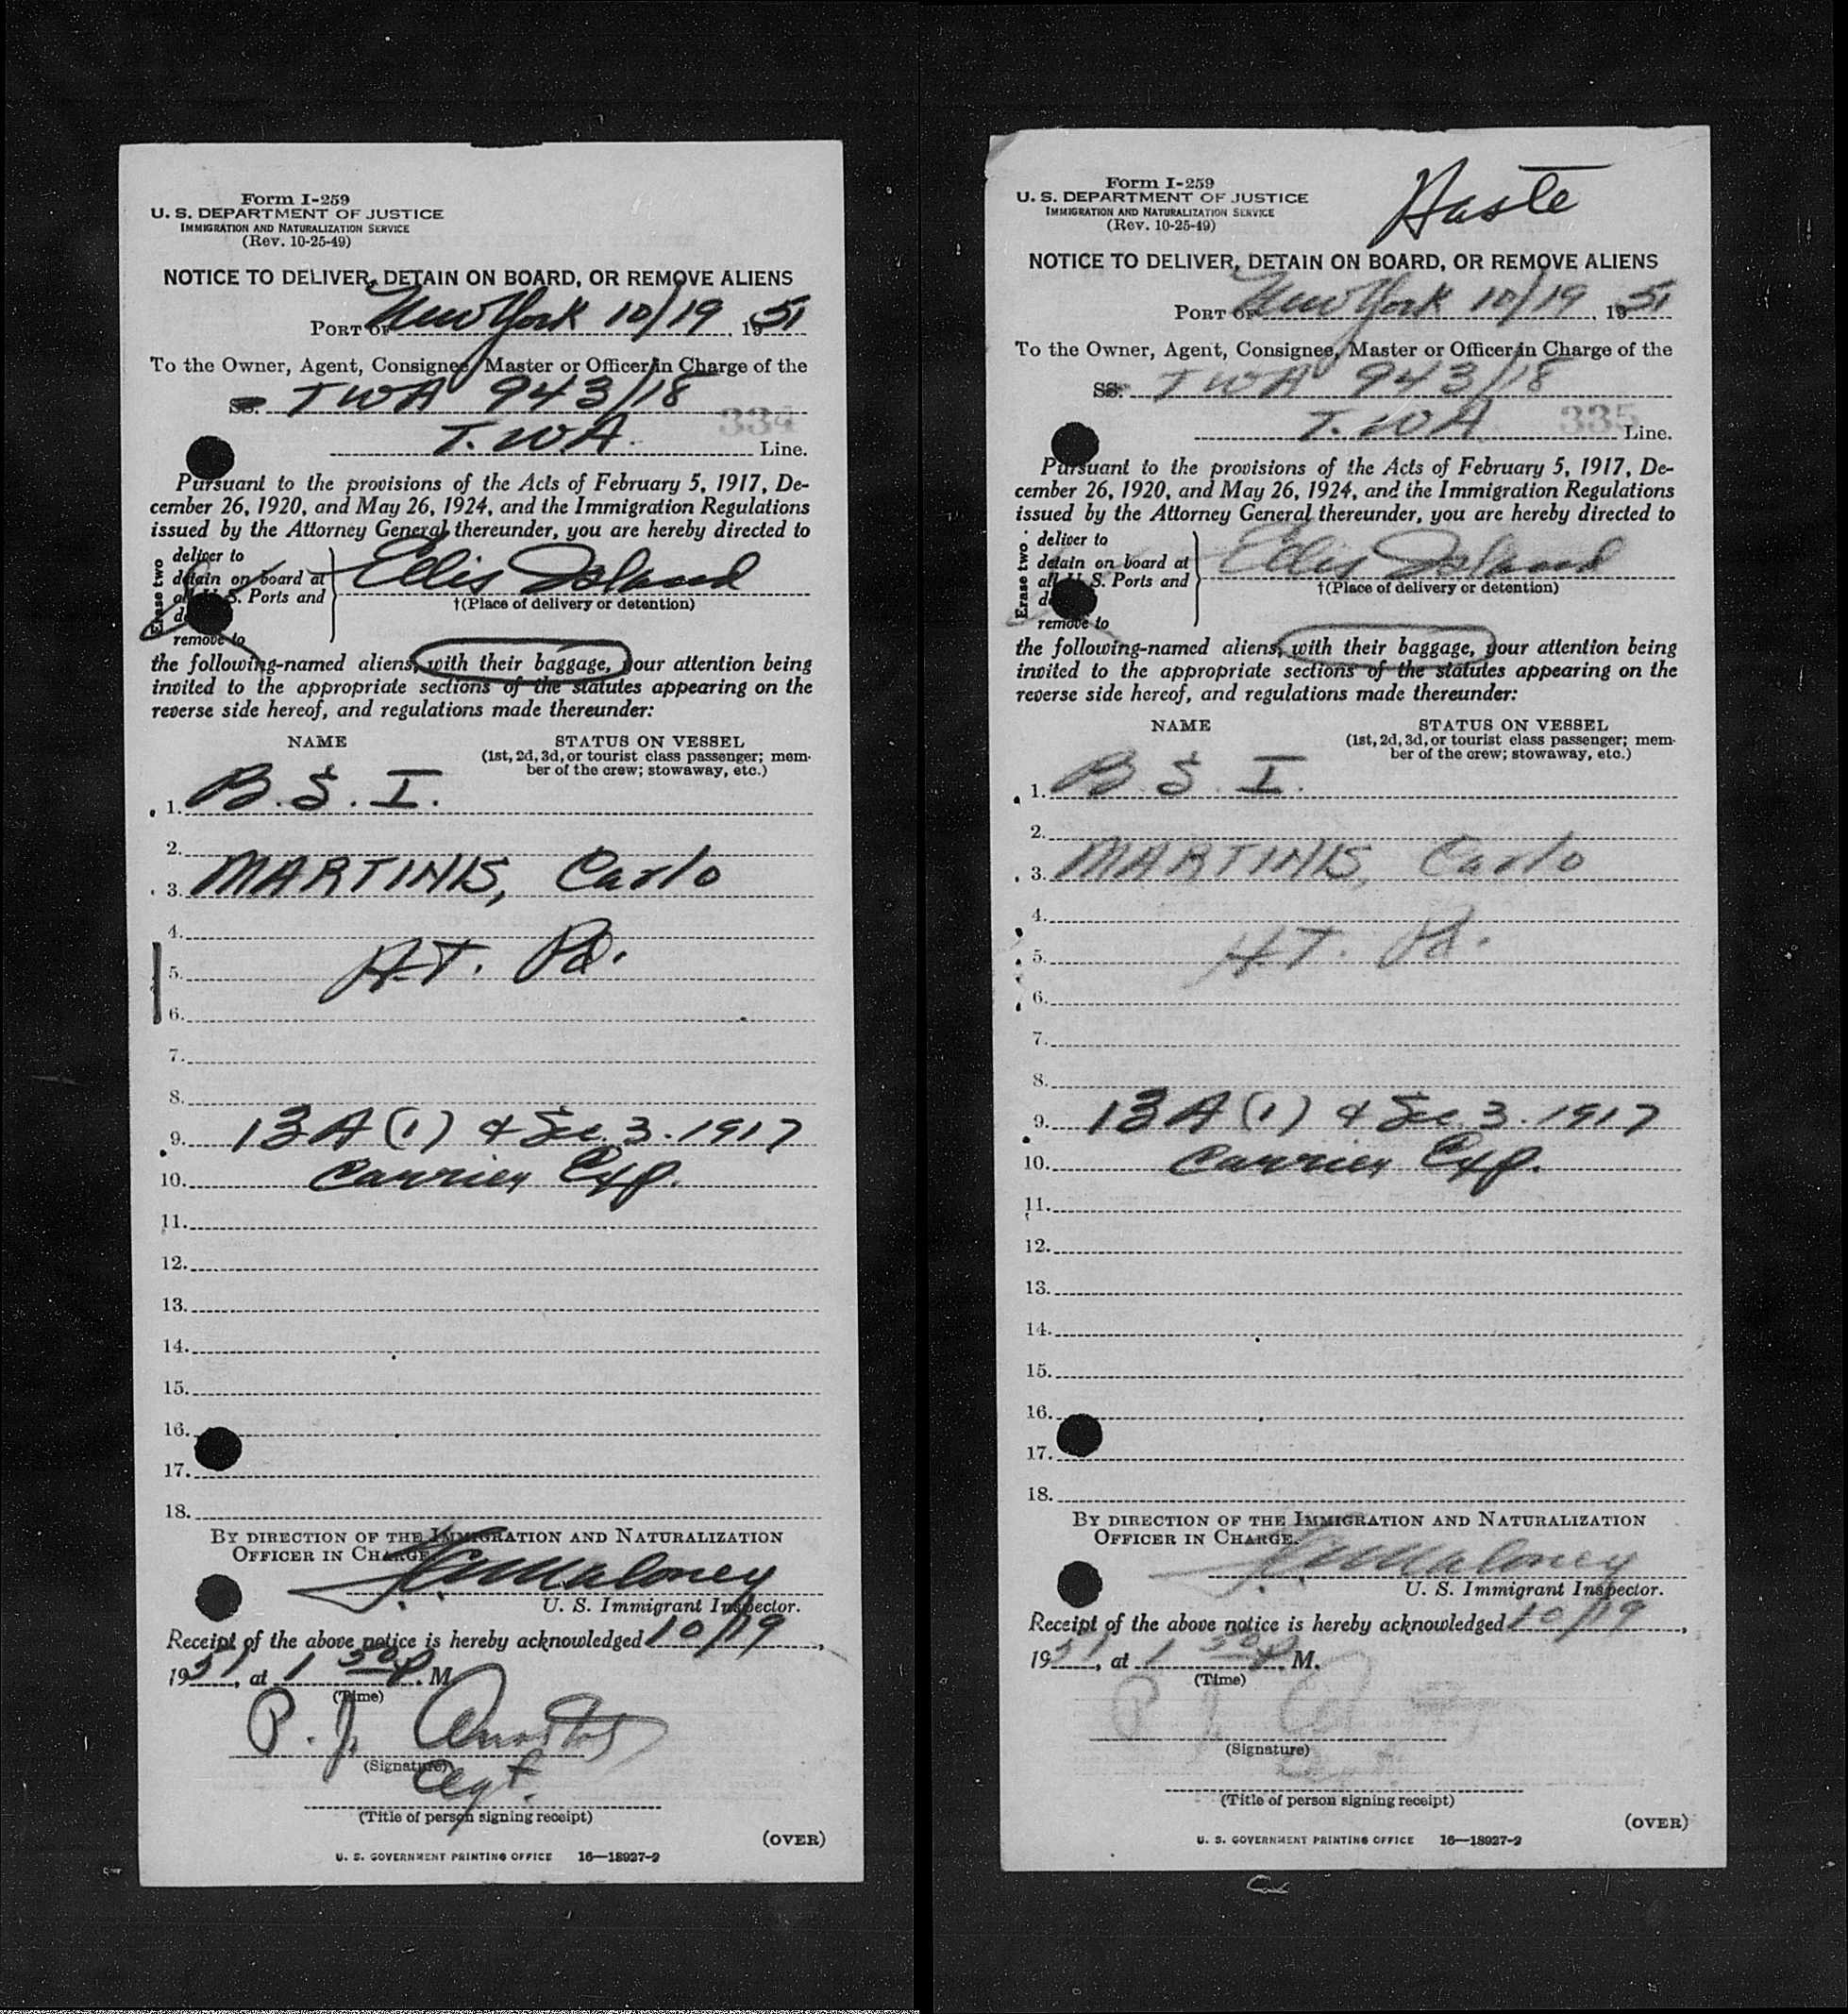 Form I-259
U. S. DEPARTMENT OF JUSTICE
IMMIGRATION AND NATURALIZATION SERVICE
(Rev. 10-25-49)
NOTICE TO DELIVER, DETAIN ON BOARD, OR REMOVE ALIENS
PORT OF New York 10/19, 1951
To the Owner, Agent, Consignee, Master or Officer in Charge of the
SS. TWA 943/18
334
T.W.A. Line.
Pursuant to the provisions of the Acts of February 5, 1917, De-
cember 26, 1920, and May 26, 1924, and the Immigration Regulations
issued by the Attorney General thereunder, you are hereby directed to
Erase two
deliver to
detain on board at
all U. S. Ports and
remove to
Ellis Island
†(Place of delivery or detention)
the following-named aliens, with their baggage, your attention being
invited to the appropriate sections of the statutes appearing on the
reverse side hereof, and regulations made thereunder:
NAME STATUS ON VESSEL
(1st, 2d, 3d, or tourist class passenger; mem-
ber of the crew; stowaway, etc.)
1. B. S. I.
2.
3. MARTINIS, Carlo
4.
5. H.T. Pd.
6.
7.
8.
9. 13 A (1) & Sec. 3. 1917
10. Carrier Exp.
11.
12.
13.
14.
15.
16.
17.
18.
BY DIRECTION OF THE IMMIGRATION AND NATURALIZATION
OFFICER IN CHARGE.
Maloney
U. S. Immigrant Inspector.
Receipt of the above notice is hereby acknowledged 10/19,
1951, at 1 30 P. M.
(Time)
P. J.
(Signature)
Agt.
(Title of person signing receipt)
(OVER)
U. S. GOVERNMENT PRINTING OFFICE 16—18927-2
Haste
Form I-259
U. S. DEPARTMENT OF JUSTICE
IMMIGRATION AND NATURALIZATION SERVICE
(Rev. 10-25-49)
NOTICE TO DELIVER, DETAIN ON BOARD, OR REMOVE ALIENS
PORT OF New York 10/19, 1951
To the Owner, Agent, Consignee, Master or Officer in Charge of the
SS. TWA 943/18
335
T.W.A Line.
Pursuant to the provisions of the Acts of February 5, 1917, De-
cember 26, 1920, and May 26, 1924, and the Immigration Regulations
issued by the Attorney General thereunder, you are hereby directed to
Erase two
deliver to
detain on board at
all U. S. Ports and
remove to
Ellis Island
†(Place of delivery or detention)
the following-named aliens, with their baggage, your attention being
invited to the appropriate sections of the statutes appearing on the
reverse side hereof, and regulations made thereunder:
NAME STATUS ON VESSEL
(1st, 2d, 3d, or tourist class passenger; mem-
ber of the crew; stowaway, etc.)
1. B. S. I.
2.
3. MARTINIS, Carlo
4.
5. H.T. Pd.
6.
7.
8.
9. 13 A (1) & Sec. 3. 1917
10. Carrier Exp.
11.
12.
13.
14.
15.
16.
17.
18.
BY DIRECTION OF THE IMMIGRATION AND NATURALIZATION
OFFICER IN CHARGE.
Maloney
U. S. Immigrant Inspector.
Receipt of the above notice is hereby acknowledged 10/19,
1951, at 1 30 P. M.
(Time)
P. J.
(Signature)
Agt.
(Title of person signing receipt)
(OVER)
U. S. GOVERNMENT PRINTING OFFICE 16—18927-2